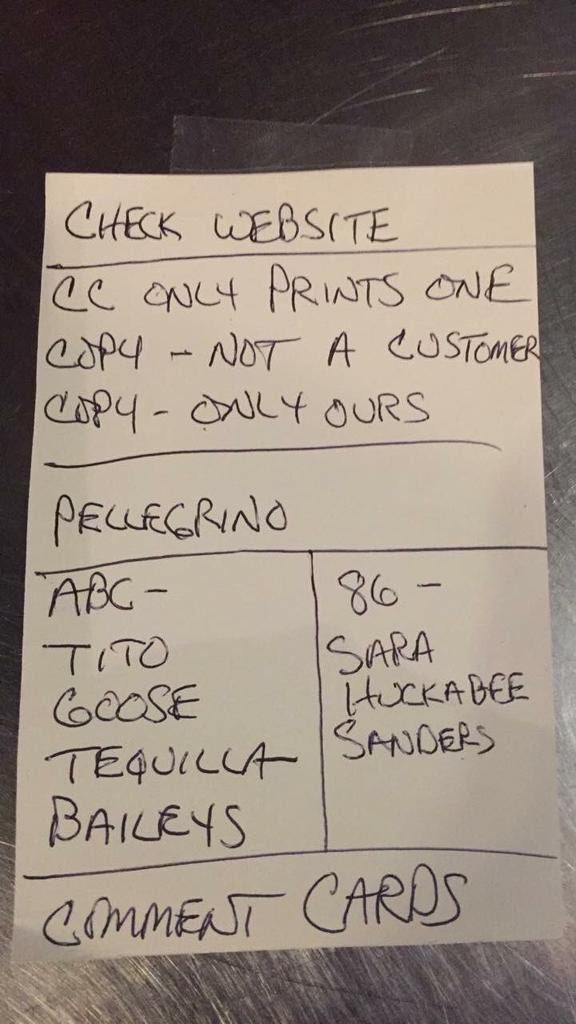 CHECK WEBSITE
CC ONLY PRINTS ONE
COPY - NOT A CUSTOMER
COPY - ONLY OURS
PELLEGRINO
ABC -
TITO
GOOSE
TEQUILLA
BAILEYS
86 -
SARA
HUCKABEE
SANDERS
COMMENT CARDS